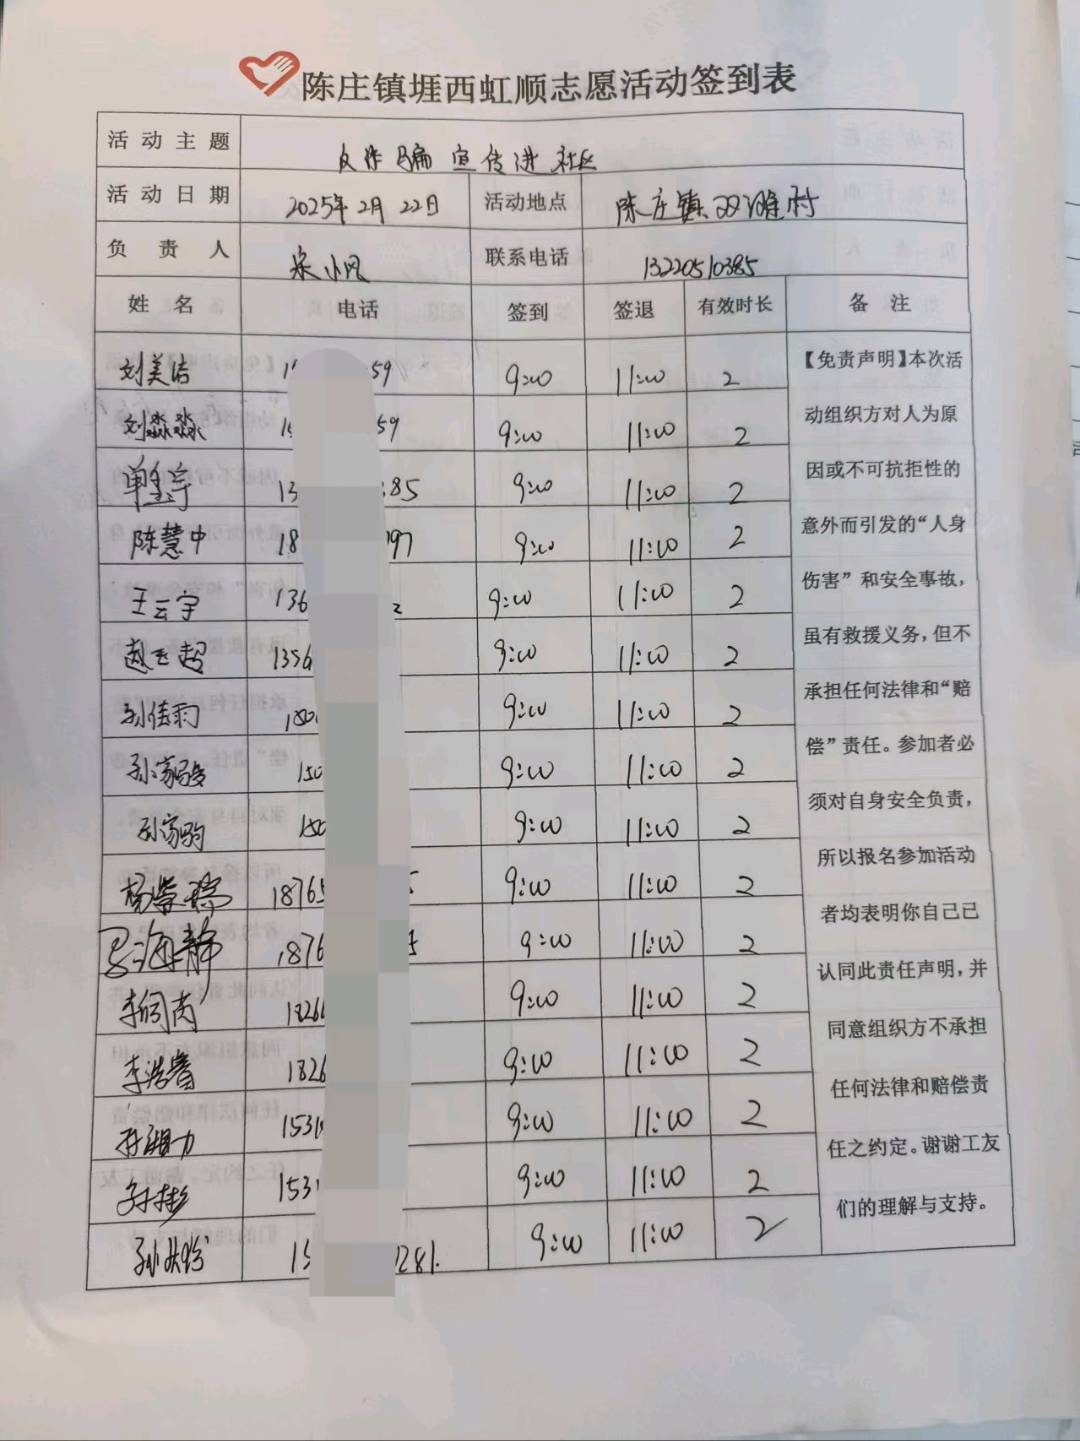 陈庄镇堐西虹顺志愿活动签到表
活动主题 反诈骗宣传进社区
活动日期 2025年2月22日 活动地点 陈庄镇双滩村
负责人 宋小风 联系电话 13220510385
姓名 电话 签到 签退 有效时长 备注
刘美洁 59 9:00 11:00 2
刘淼淼 59 9:00 11:00 2
单宝宗 13 85 9:00 11:00 2
陈慧中 18 97 9:00 11:00 2
王云宇 136 2 9:00 11:00 2
赵云超 1356 9:00 11:00 2
孙佳雨 150 9:00 11:00 2
孙家骏 150 9:00 11:00 2
孙家驹 150 9:00 11:00 2
杨学婷 18765 5 9:00 11:00 2
海静 1876 5 9:00 11:00 2
李 1826 9:00 11:00 2
李浩睿 1826 9:00 11:00 2
孙 力 1531 9:00 11:00 2
孙彬 1531 9:00 11:00 2
孙 15 281. 9:00 11:00 2
【免责声明】本次活
动组织方对人为原
因或不可抗拒性的
意外而引发的“人身
伤害”和安全事故，
虽有救援义务，但不
承担任何法律和“赔
偿”责任。参加者必
须对自身安全负责，
所以报名参加活动
者均表明你自己已
认同此责任声明，并
同意组织方不承担
任何法律和赔偿责
任之约定。谢谢工友
们的理解与支持。